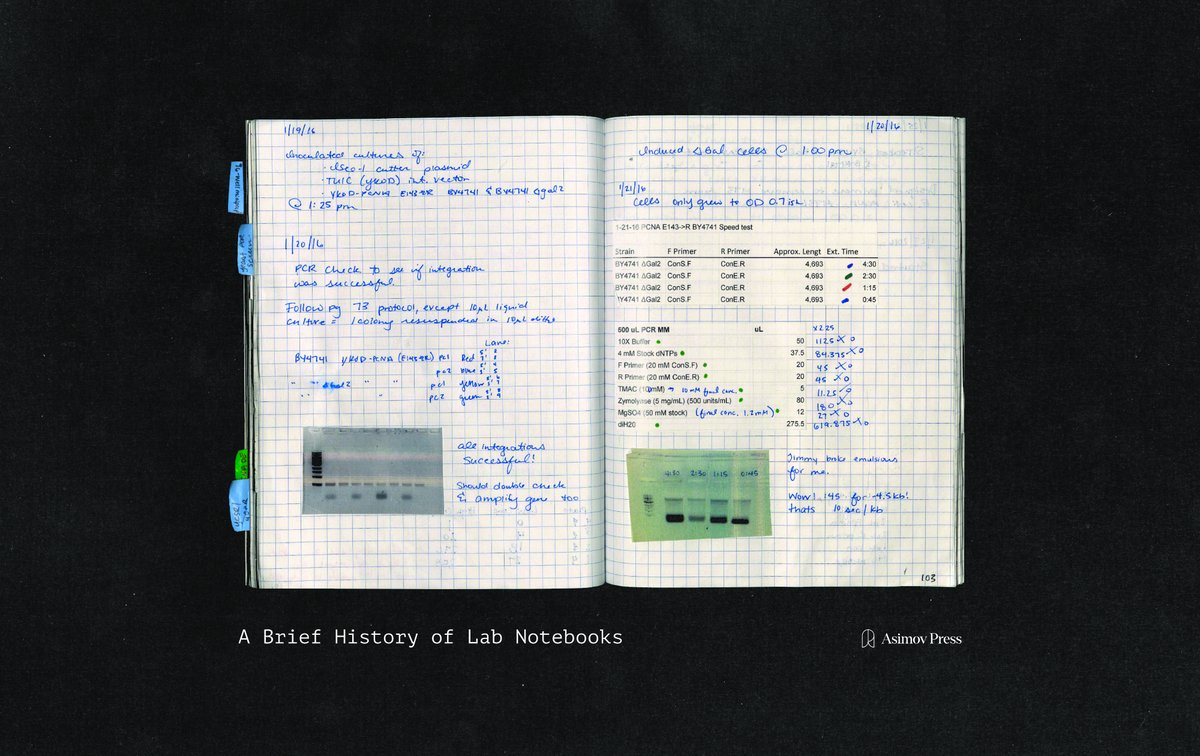 1/19/16
Inoculated cultures of:
@ 1:25 pm
1/20/16
PCR check to see if integration
was successful.
Follow pg 73 protocol, except 10µL liquid
culture = 1 colony resuspended in 10µL
Lane:
BY4741 YKOD-PCNA (E143R) pc1 Red
pc2 blue
" " ΔGal2 " " pc1 yellow
" " pc2 green
all integrations
successful!
Should double check
& amplify gen
1/20/16
Induced ΔGal cells @ 1:00 pm
1/21/16
Cells only grew to OD 0.7 ish
1-21-16 PCNA E143->R BY4741 Speed test
Strain F Primer R Primer Approx. Lengt Ext. Time
BY4741 ΔGal2 ConS.F ConE.R 4,693 4:30
BY4741 ΔGal2 ConS.F ConE.R 4,693 2:30
BY4741 ΔGal2 ConS.F ConE.R 4,693 1:15
BY4741 ΔGal2 ConS.F ConE.R 4,693 0:45
500 uL PCR MM uL x2.25
10X Buffer 50 112.5
4 mM Stock dNTPs 37.5 84.375
F Primer (20 mM ConS.F) 20 45
R Primer (20 mM ConE.R) 20 45
TMAC (10mM) → 10 mM final conc. 5 11.25
Zymolyase (5 mg/mL) (500 units/mL) 80 180
MgSO4 (50 mM stock) (final conc. 1.2mM) 12 27
diH20 275.5 619.875
4:30 2:30 1:15 0:45
Jimmy broke emulsions
for me.
Wow! :45 for ~4.5kb!
thats 10 sec/kb
103
A Brief History of Lab Notebooks
Asimov Press